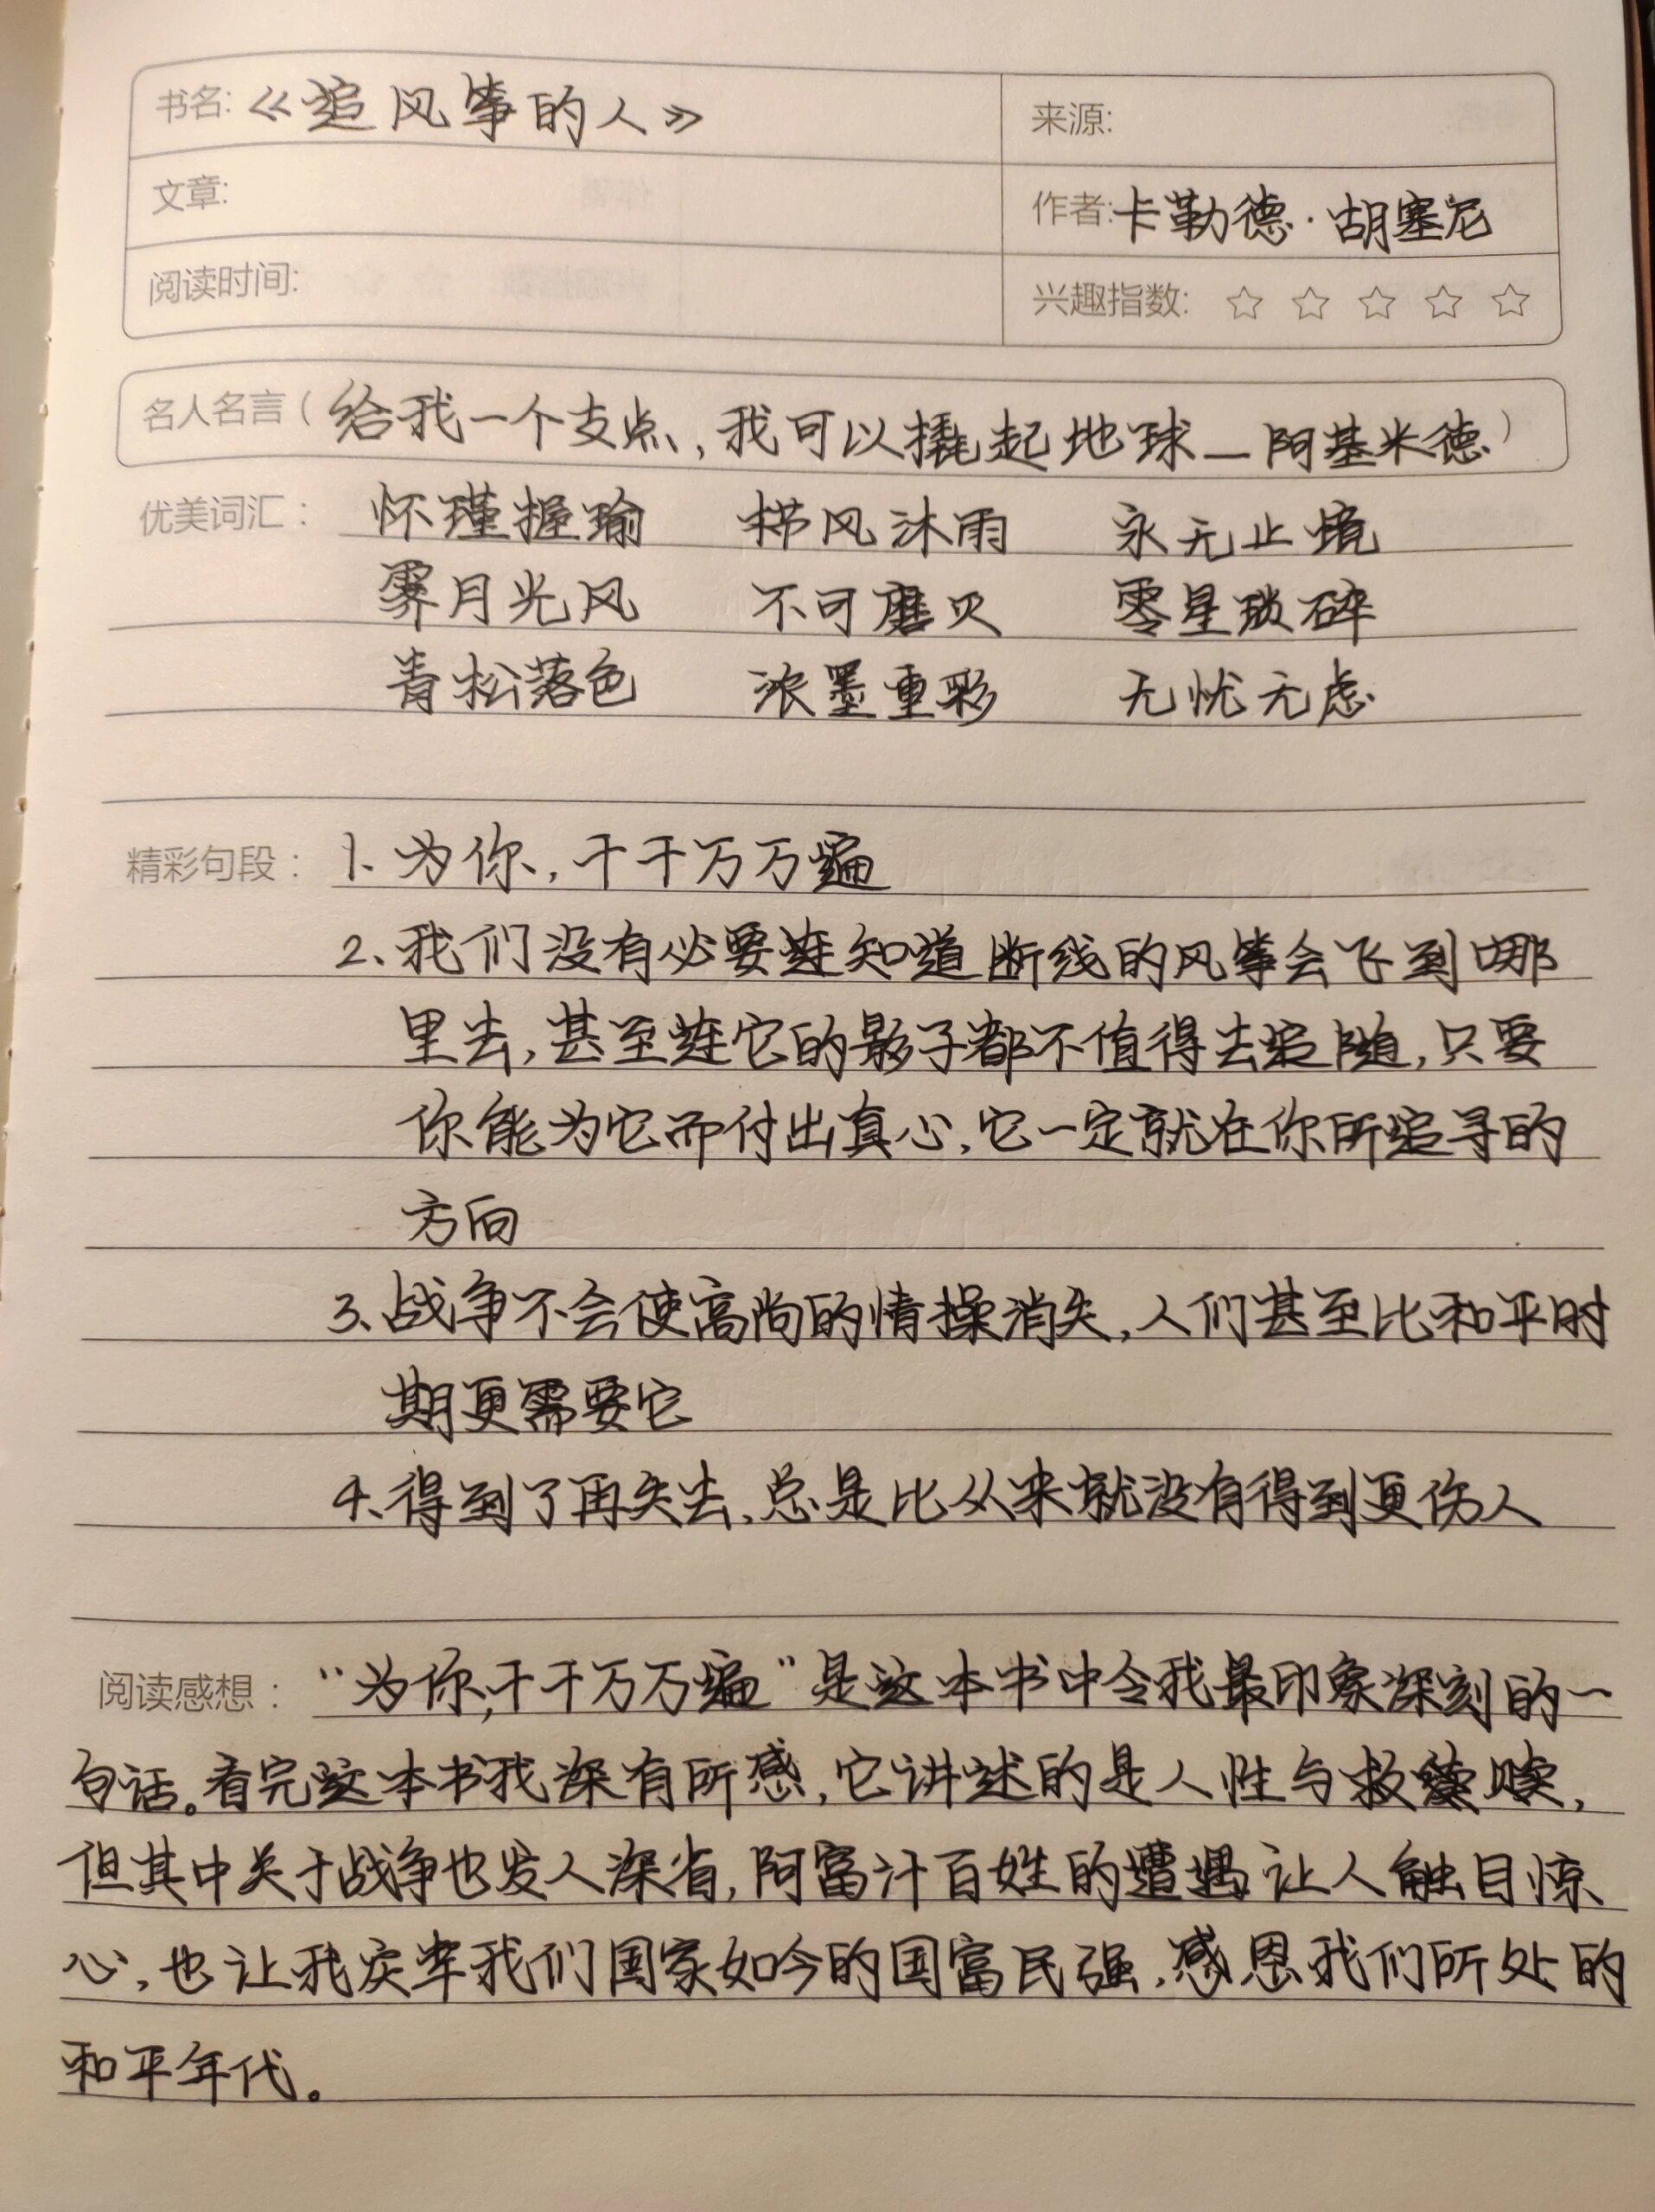 书名:《追风筝的人》
来源:
文章:
作者:卡勒德·胡塞尼
阅读时间:
兴趣指数: ☆ ☆ ☆ ☆ ☆
名人名言(给我一个支点,我可以撬起地球—阿基米德)
优美词汇: 怀瑾握瑜 栉风沐雨 永无止境
霁月光风 不可磨灭 零星琐碎
青松落色 浓墨重彩 无忧无虑
精彩句段: 1、为你,千千万万遍
2、我们没有必要连知道断线的风筝会飞到哪
里去,甚至连它的影子都不值得去追随,只要
你能为它而付出真心,它一定就在你所追寻的
方向
3、战争不会使高尚的情操消失,人们甚至比和平时
期更需要它
4、得到了再失去,总是比从来就没有得到更伤人
阅读感想: “为你,千千万万遍”是这本书中令我最印象深刻的一
句话。看完这本书我深有所感,它讲述的是人性与救赎,
但其中关于战争也发人深省,阿富汗百姓的遭遇让人触目惊
心,也让我庆幸我们国家如今的国富民强,感恩我们所处的
和平年代。